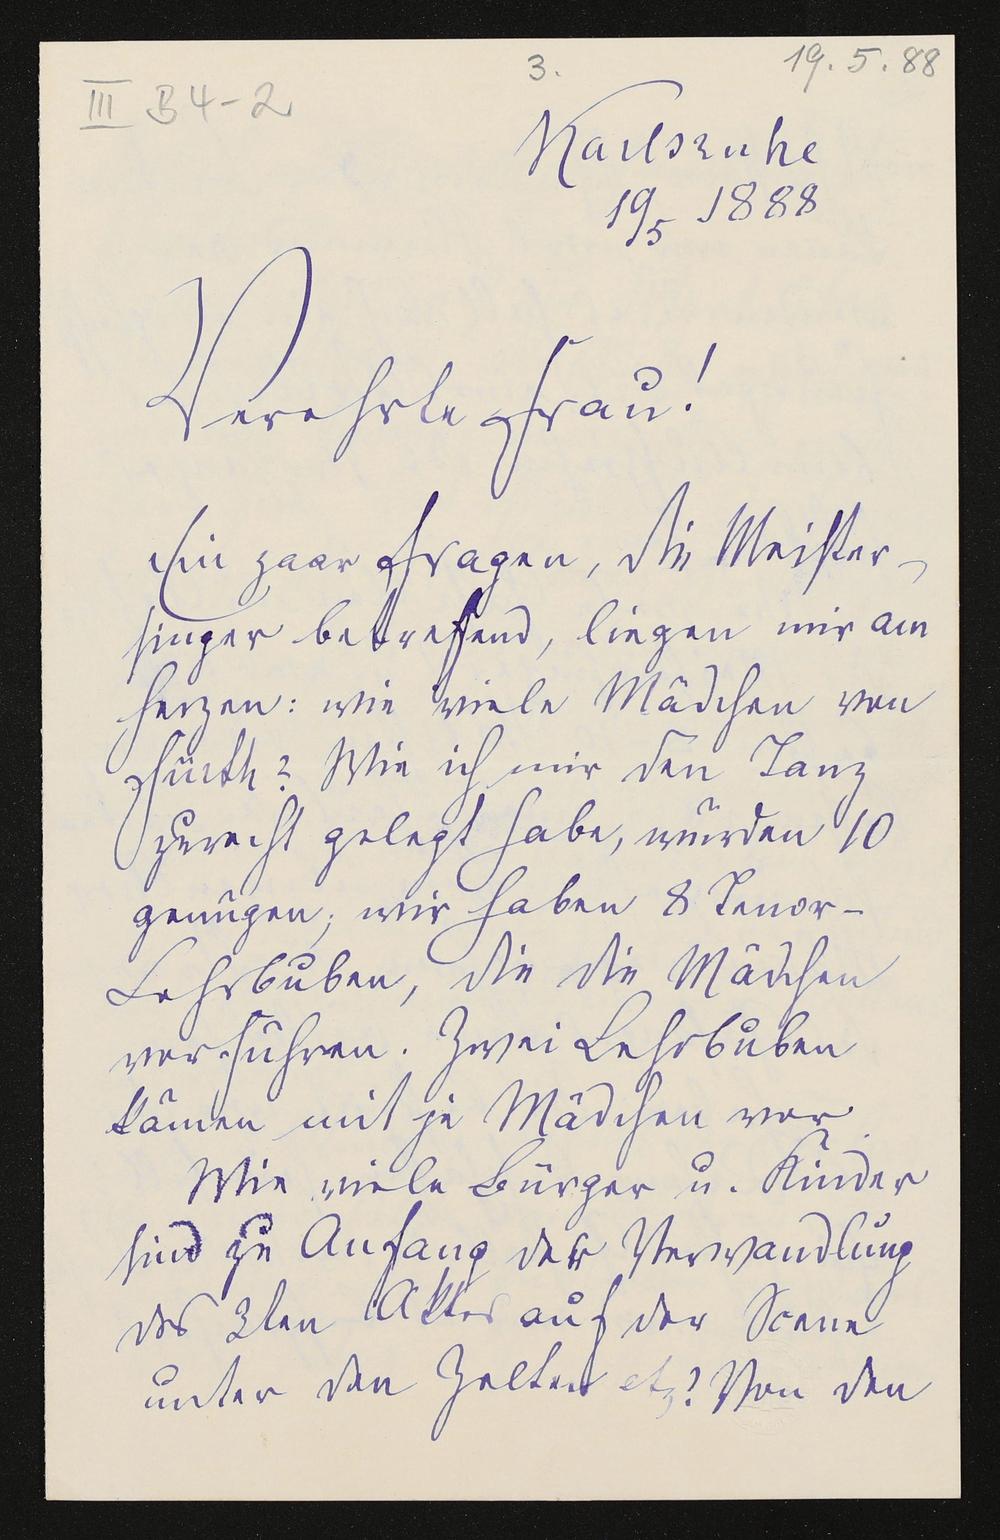 3.
19. 5. 88
III B 4-2
Karlsruhe
19/5 1888
Verehrte Frau!
Ein paar Fragen, die Meister-
singer betreffend, liegen mir am
Herzen: wie viele Mädchen von
Fürth? Wie ich mir den Tanz
zurecht gelegt habe, würden 10
genügen; wir haben 8 Tenor-
Lehrbuben, die die Mädchen
vorführen. Zwei Lehrbuben
kämen mit je Mädchen vor.
Wie viele Bürger u. Kinder
sind zu Anfang der Verwandlung
des 3ten Aktes auf der Scene
unter den Zelten etz? Von den